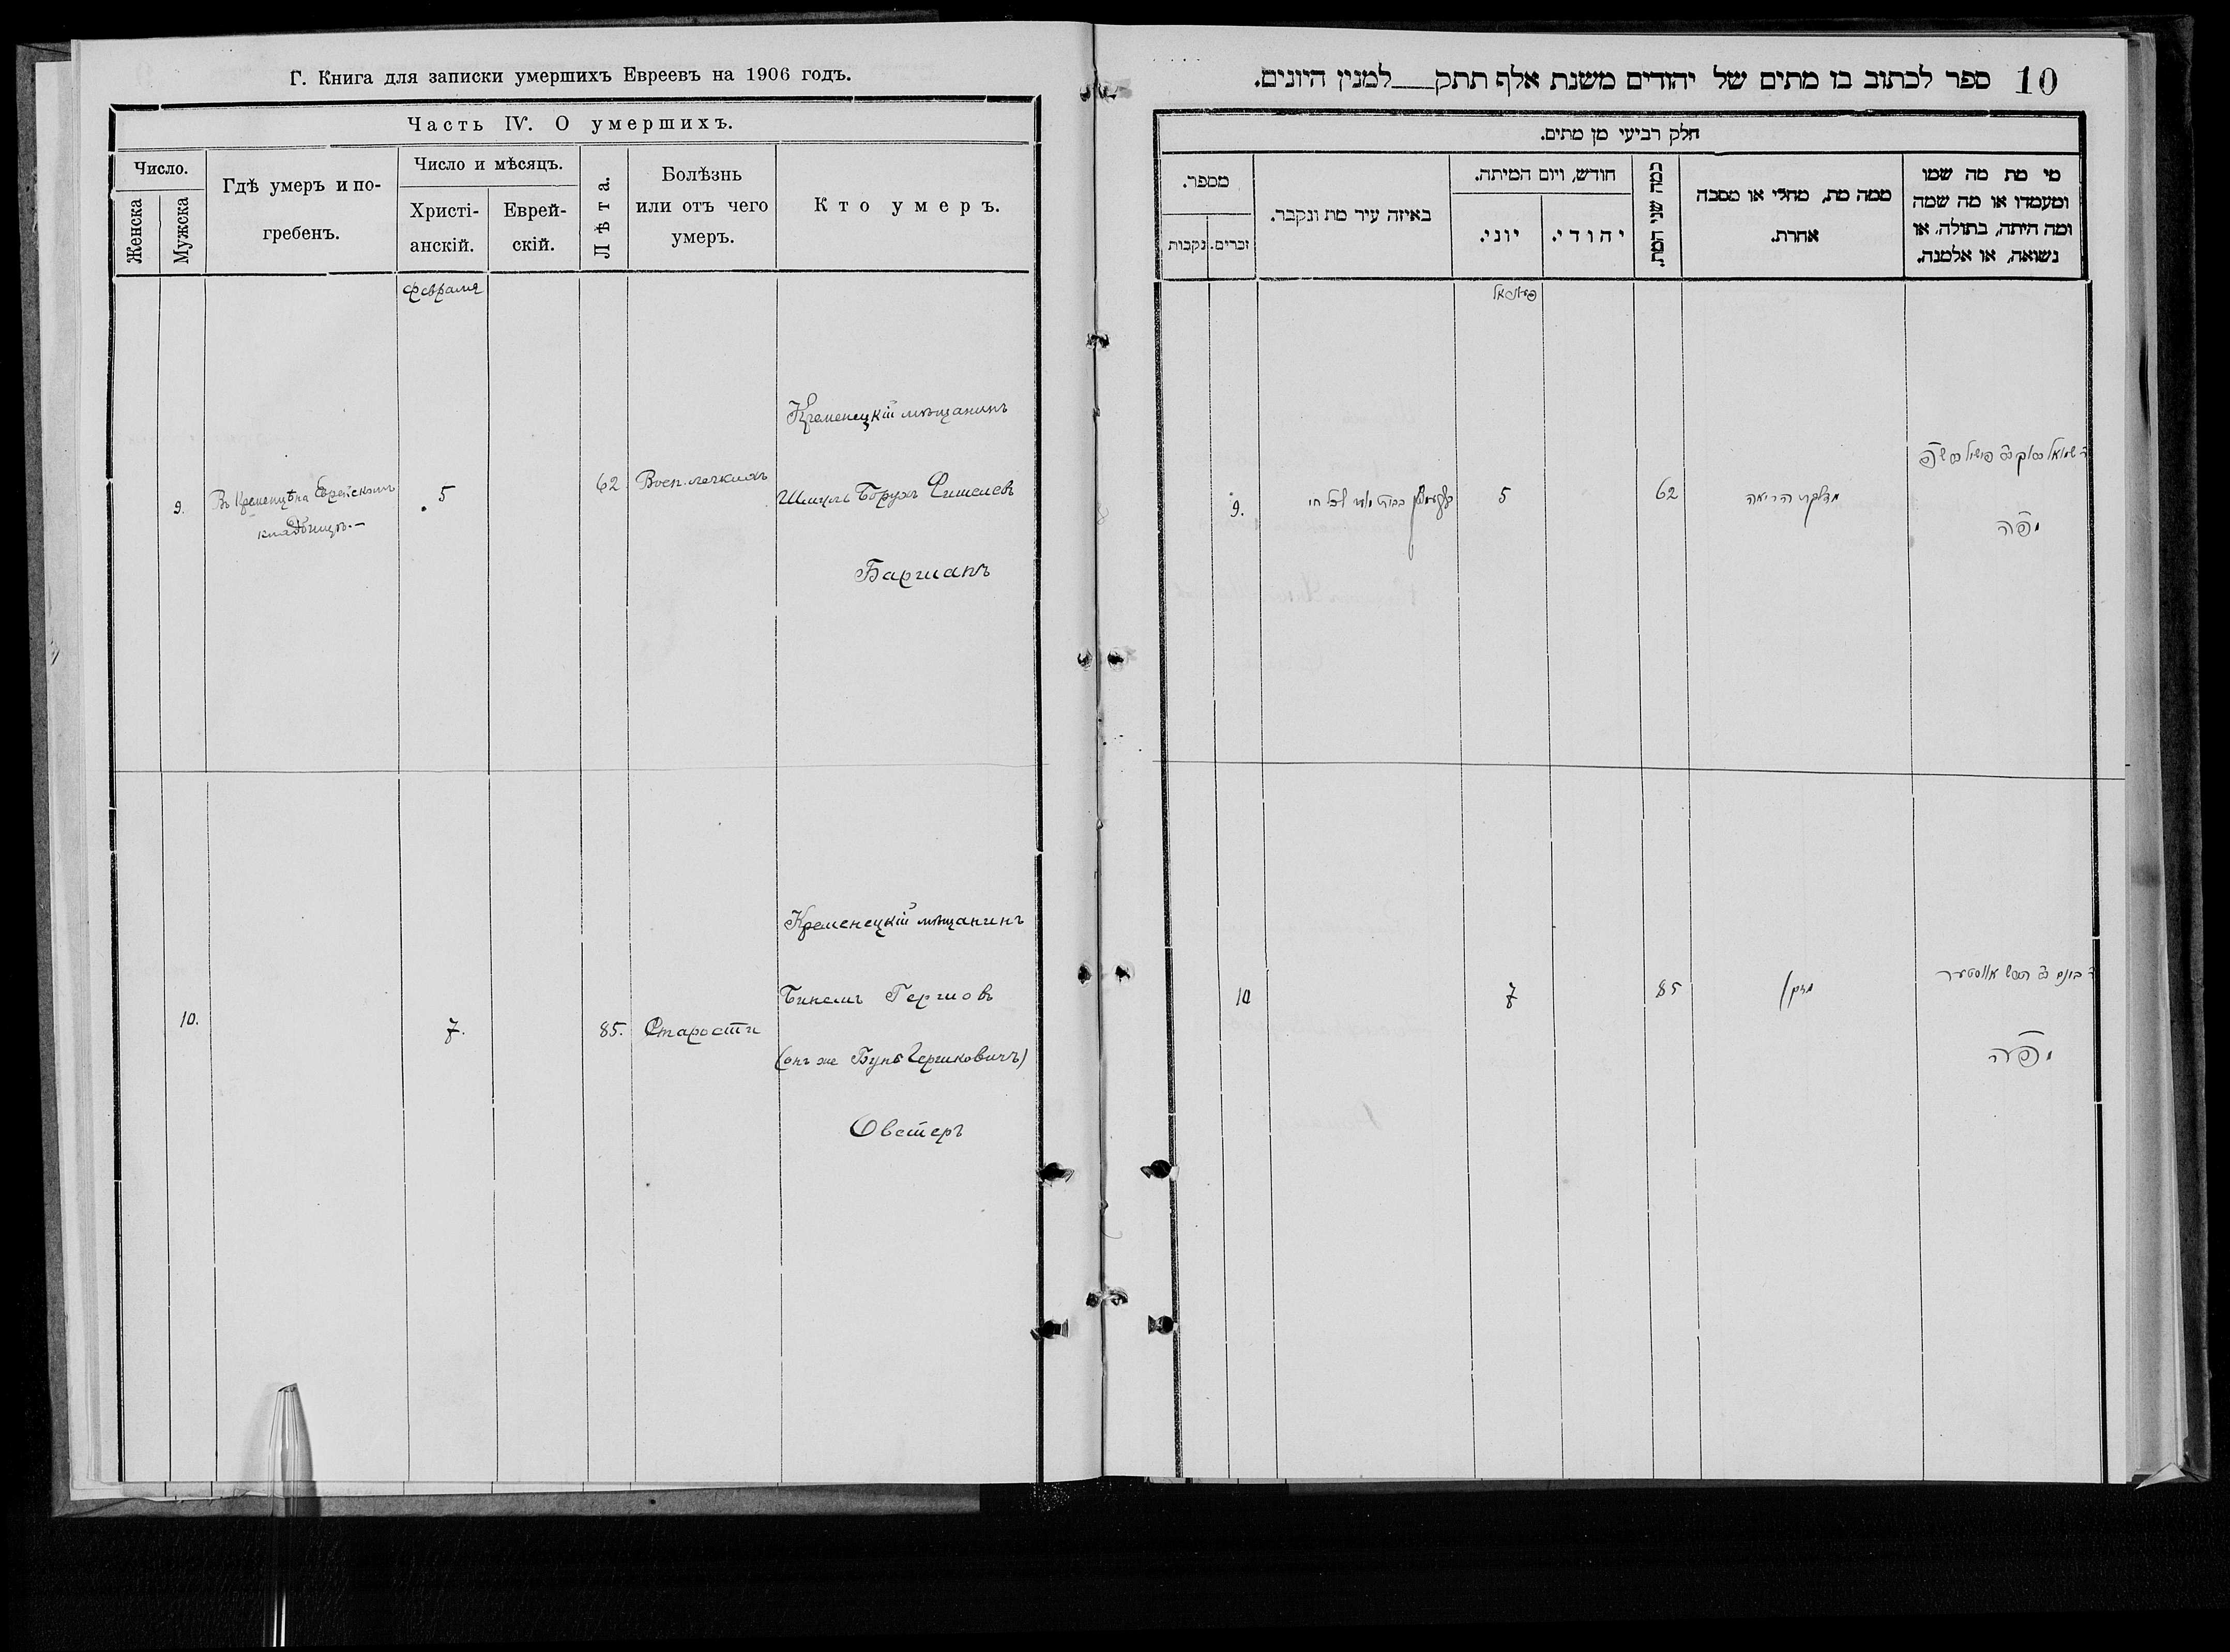 Г. Книга для записки умершихъ Евреевъ на 1906 годъ.
Часть IV. О умершихъ.
Число.
Женска
Мужска
Гдѣ умеръ и по-
гребенъ.
Число и мѣсяцъ.
Христі-
анскій.
Еврей-
скій.
Лѣта.
Болѣзнь
или отъ чего
умеръ.
Кто умеръ.
Февраля
Кременецкій мѣщанинъ
9. Въ Кременцѣ на Еврейскомъ 5 62 Восп. легкихъ Шмуль Борухъ Фишелевъ
кладбищѣ.—
Барманъ
Кременецкій мѣщанинъ
Бинемъ Гершовъ
10. 7. 85. Старости
(онъ же Бунь Гершковичъ)
Овстеръ
10 ספר לכתוב בו מתים של יהודים משנת אלף תתק___למנין היונים.
חלק רביעי מן מתים.
מי מת מה שמו
ומעמדו או מה שמה
ומה היתה, בתולה, או
נשואה, או אלמנה.
ממה מת, מחלי או מסבה
אחרת.
כמה שני המת.
חודש, ויום המיתה.
יהודי.
יוני.
באיזה עיר מת ונקבר.
מספר.
זכרים.
נקבות
ר שמואל
62
5
9.
מדלקת הריאה
85
7
10
מזקן